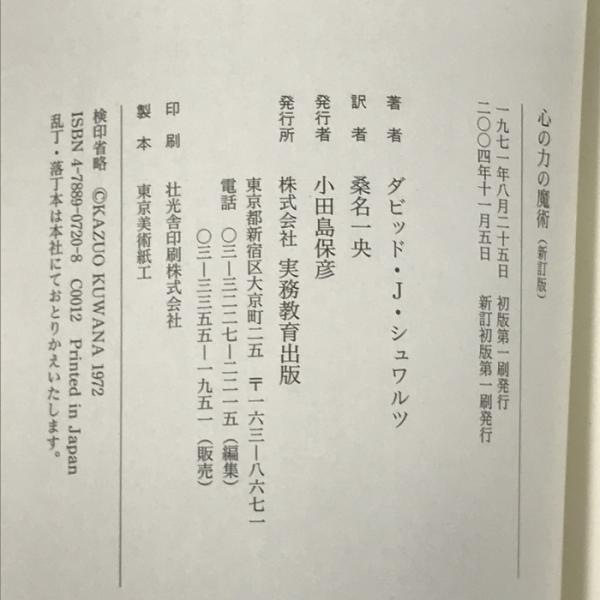 心の力の魔術(新訂版)
一九七一年八月二十五日 初版第一刷発行
二〇〇四年十一月五日 新訂初版第一刷発行
著者 ダビッド・J・シュワルツ
訳者 桑名一央
発行者 小田島保彦
発行所 株式会社 実務教育出版
東京都新宿区大京町二五 〒一六三―八六七一
電話 〇三―三二二七―二二一五(編集)
〇三―三三五五―一九五一(販売)
印刷 壮光舎印刷株式会社
製本 東京美術紙工
検印省略 ©KAZUO KUWANA 1972
ISBN 4-7889-0720-8 C0012 Printed in Japan
乱丁・落丁本は本社にておとりかえいたします。